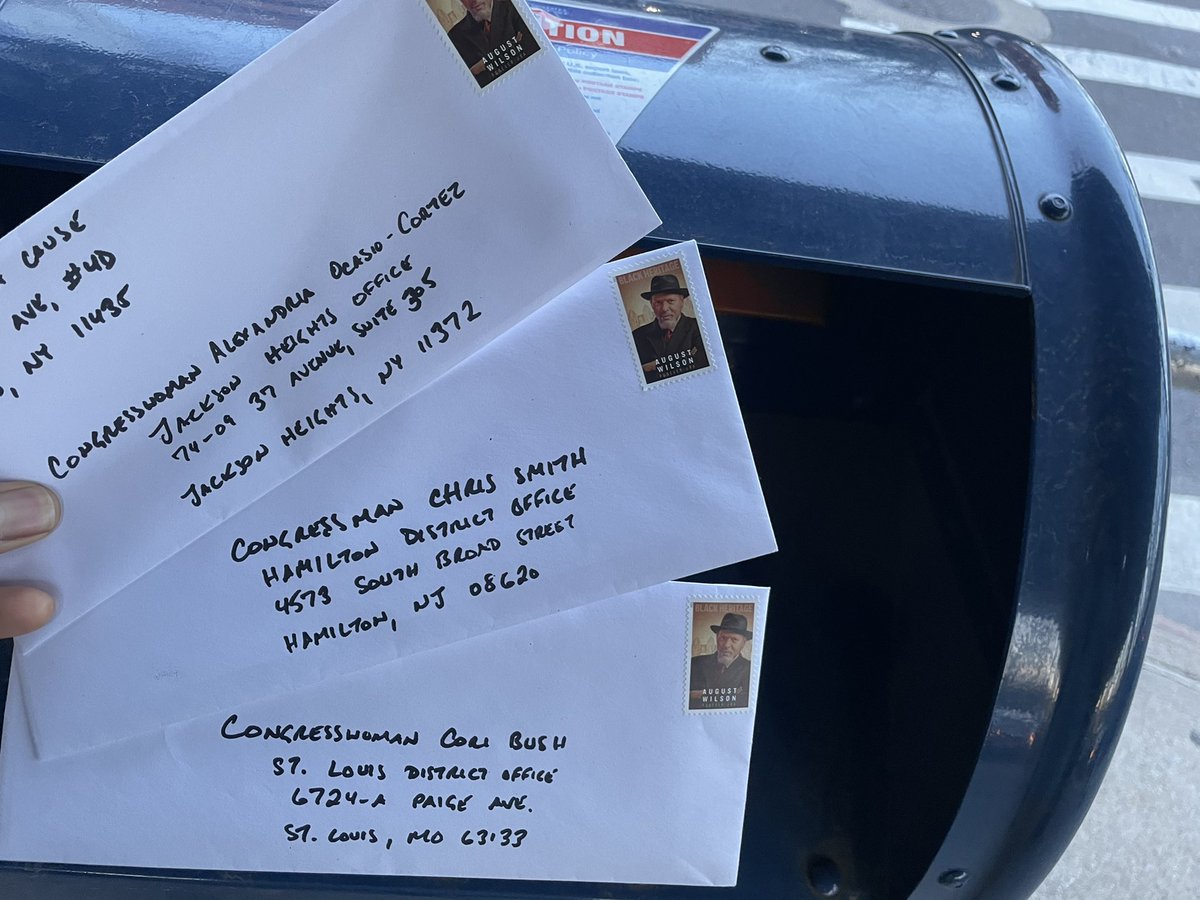 TION
Policy
AUGUST
WILSON
FOREVER USA
CAUSE
AVE, #4D
, NY 11435
CONGRESSWOMAN ALEXANDRIA OCASIO-CORTEZ
JACKSON HEIGHTS OFFICE
74-09 37 AVENUE, SUITE 305
JACKSON HEIGHTS, NY 11372
BLACK HERITAGE
AUGUST
WILSON
FOREVER USA
CONGRESSMAN CHRIS SMITH
HAMILTON DISTRICT OFFICE
4573 SOUTH BROAD STREET
HAMILTON, NJ 08620
BLACK HERITAGE
AUGUST
WILSON
FOREVER USA
CONGRESSWOMAN CORI BUSH
ST. LOUIS DISTRICT OFFICE
6724-A PAIGE AVE.
ST. LOUIS, MO 63133